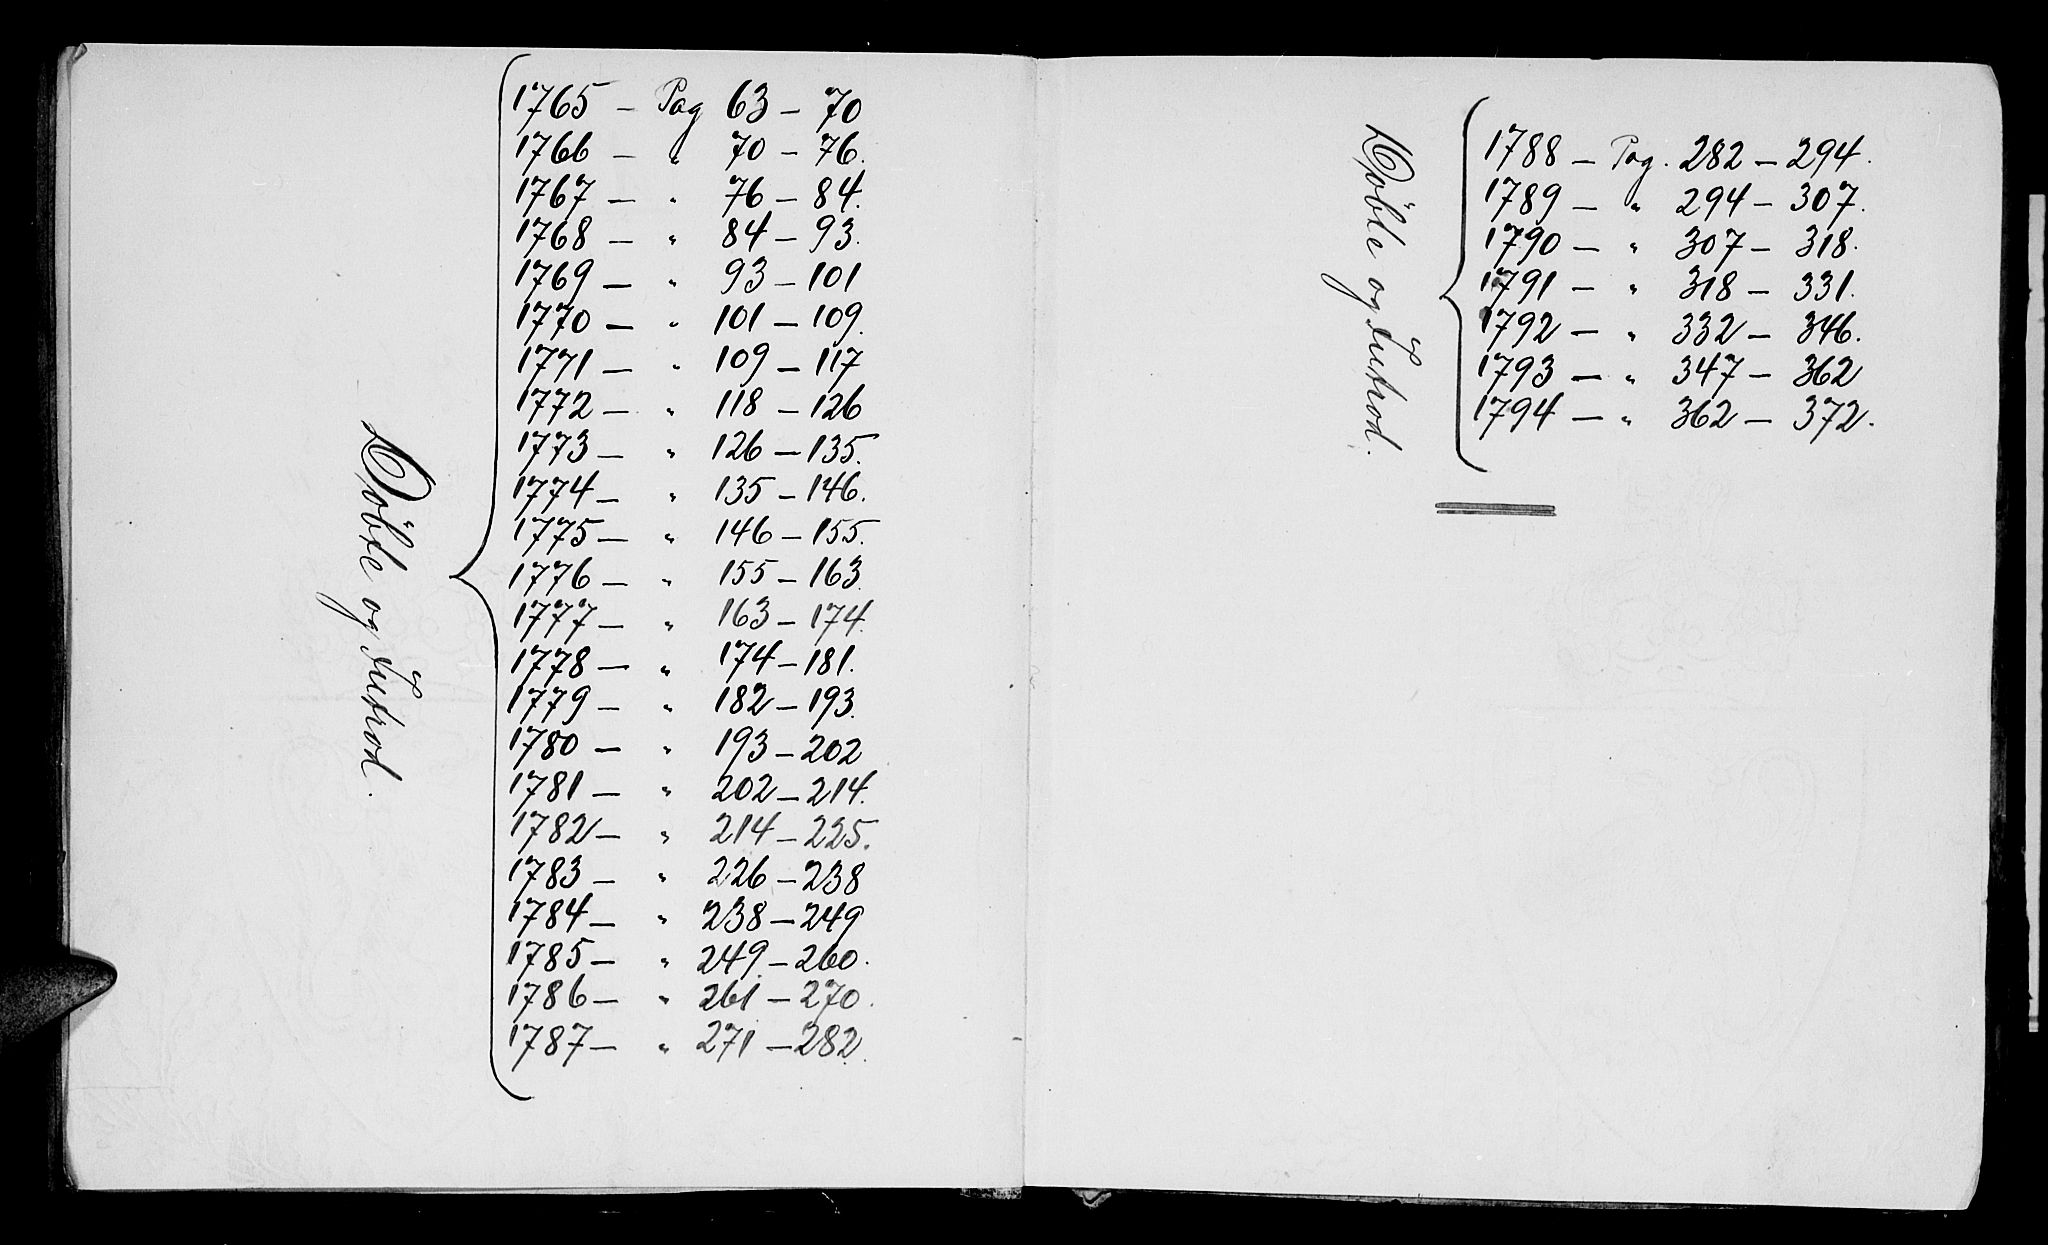 Döbte og Introd.
1765 – Pag 63 – 70
1766 – " 70 – 76.
1767 – " 76 – 84.
1768 – " 84 – 93.
1769 – " 93 – 101
1770 – " 101 – 109.
1771 – " 109 – 117
1772 – " 118 – 126
1773 – " 126 – 135.
1774 – " 135 – 146.
1775 – " 146 – 155.
1776 – " 155 – 163.
1777 – " 163 – 174.
1778 – " 174 – 181.
1779 – " 182 – 193.
1780 – " 193 – 202
1781 – " 202 – 214.
1782 – " 214 – 225.
1783 – " 226 – 238
1784 – " 238 – 249
1785 – " 249 – 260.
1786 – " 261 – 270.
1787 – " 271 – 282.
Döbte og Introd.
1788 – Pag. 282 – 294.
1789 – " 294 – 307.
1790 – " 307 – 318.
1791 – " 318 – 331.
1792 – " 332 – 346.
1793 – " 347 – 362
1794 – " 362 – 372.